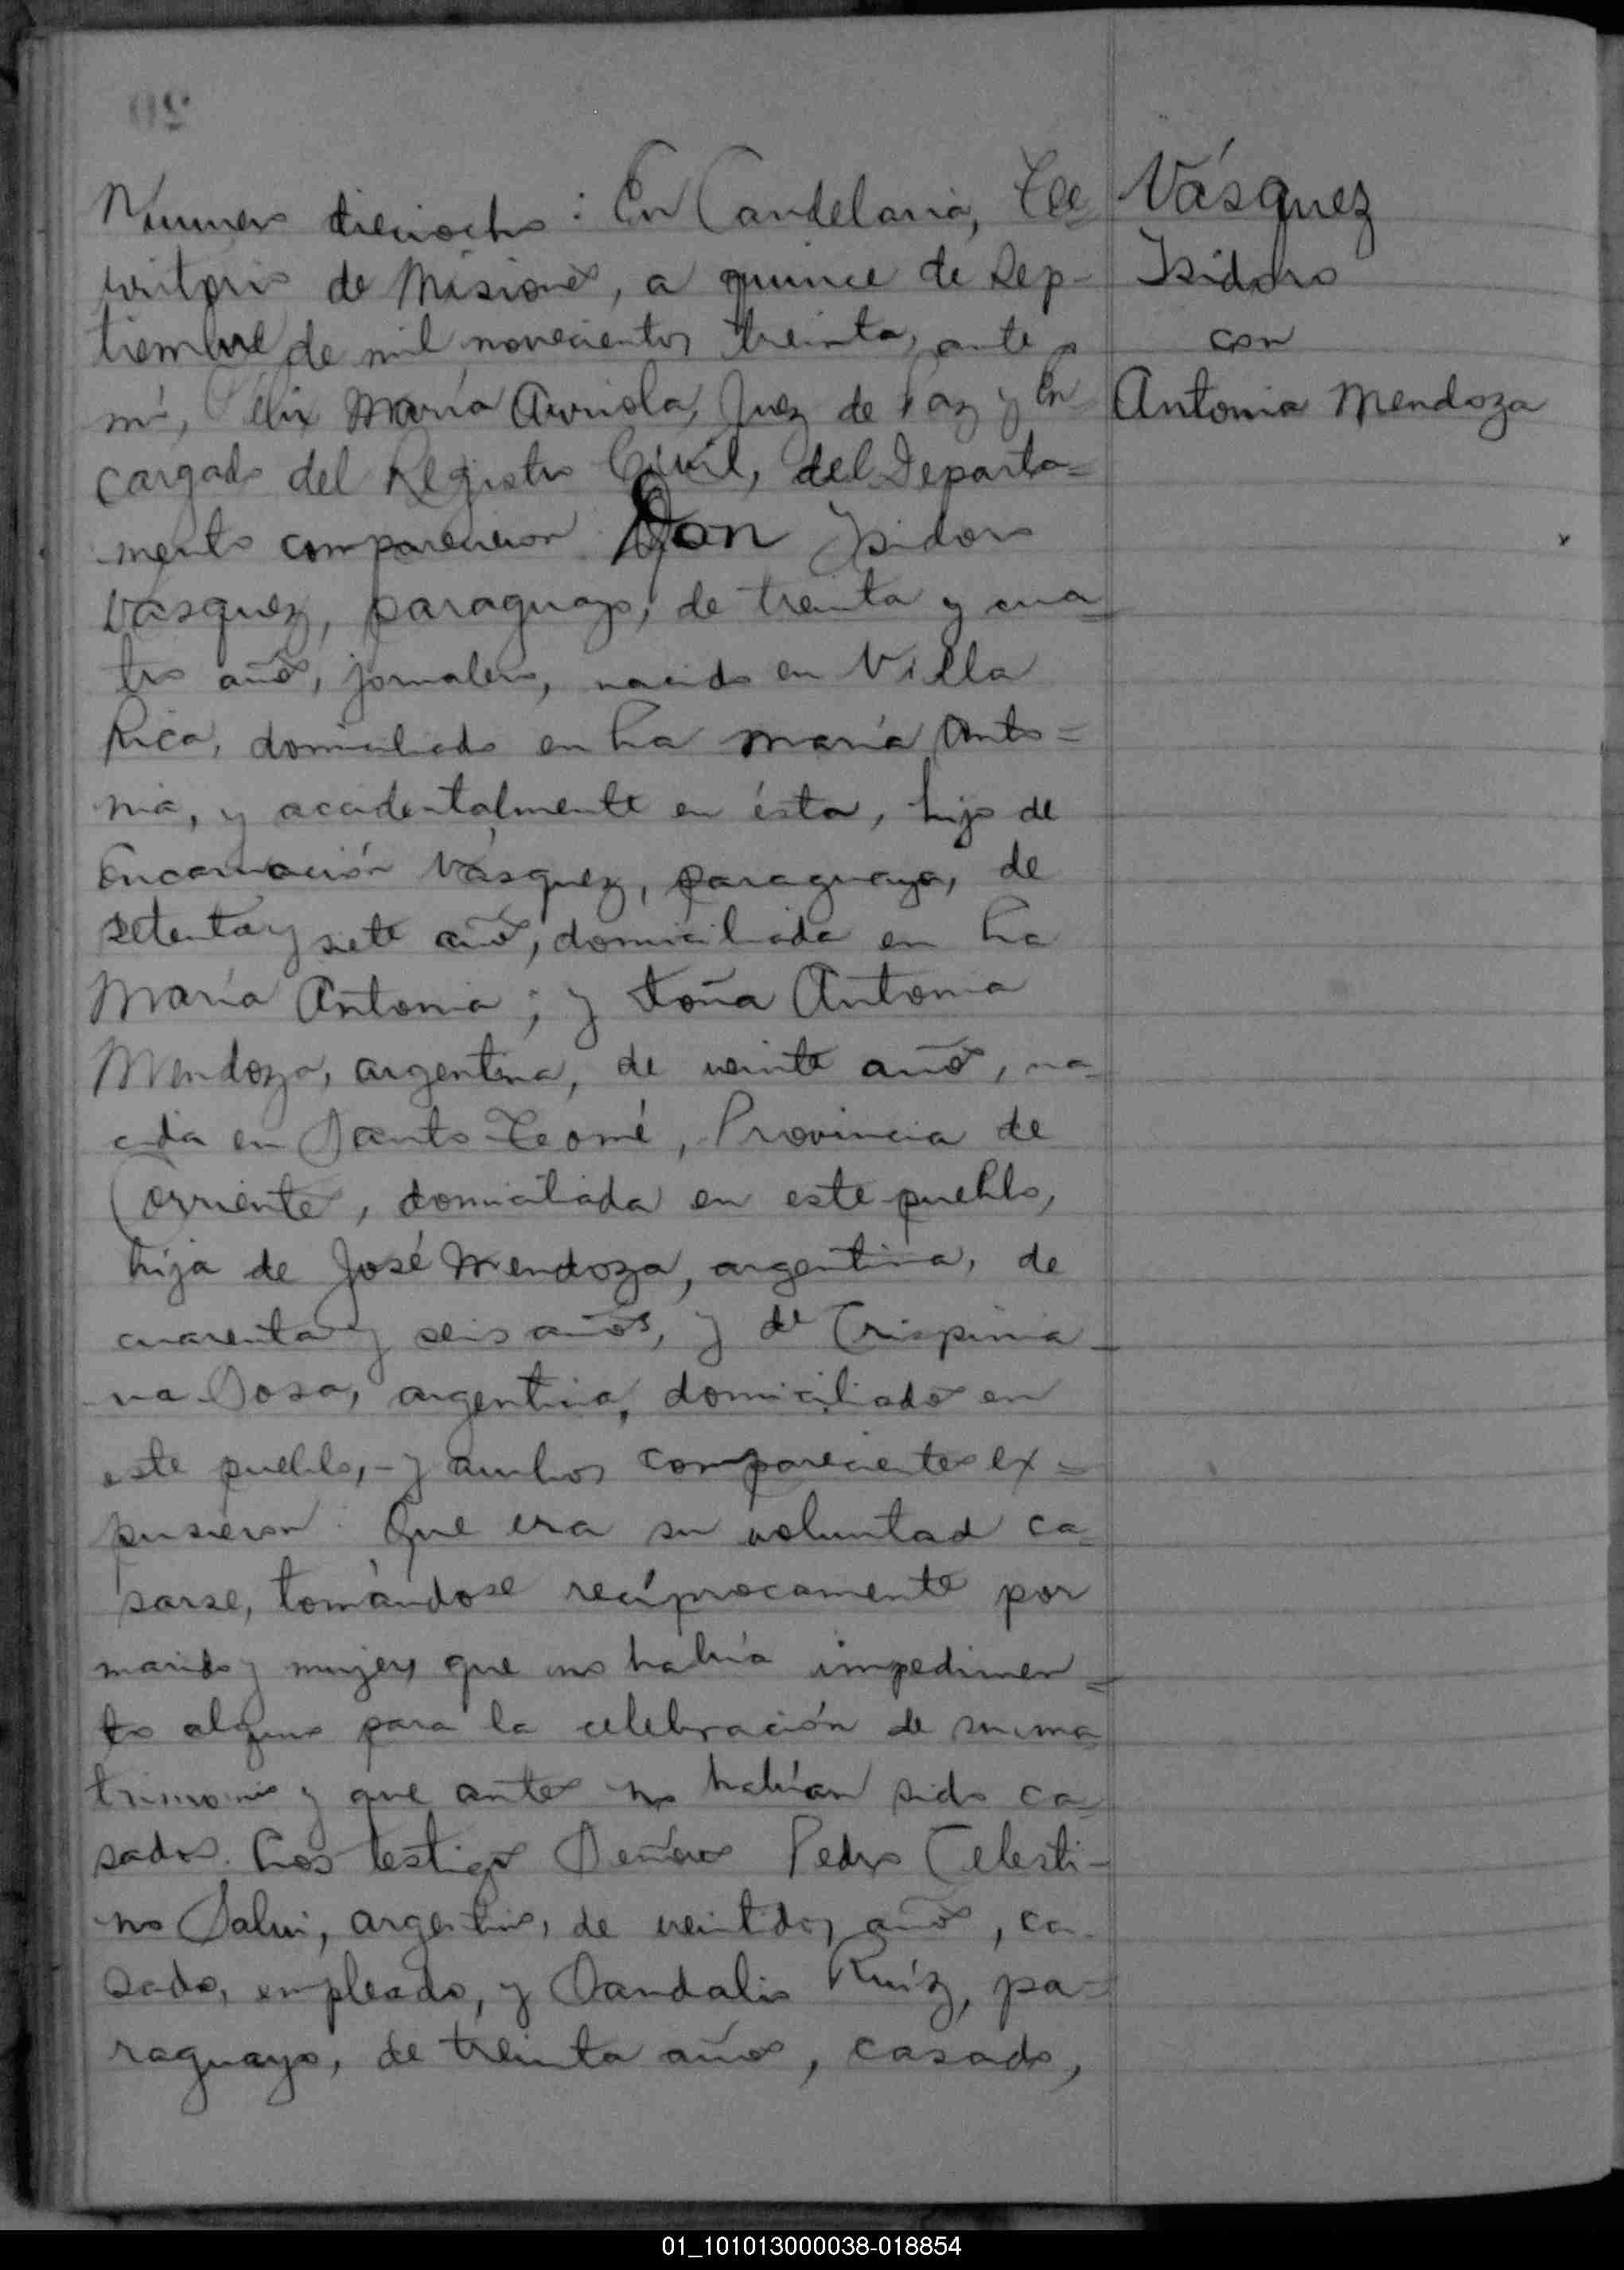 Número dieciocho: En Candelaria, Te=
rritorio de Misiones, a quince de Sep-
tiembre de mil novecientos treinta, ante
mí, Félix María Arriola, Juez de Paz y En
cargado del Registro Civil, del Departa=
mento comparecieron Don Isidoro
Vásquez, paraguayo, de treinta y cua=
tro años, jornalero, nacido en Villa
Rica, domiciliado en La María Anto=
nia, y accidentalmente en ésta, hijo de
Encarnación Vásquez, paraguaya, de
setenta y siete años, domiciliada en La
María Antonia; y doña Antonia
Mendoza, argentina, de veinte años, na=
cida en Santo Tomé, Provincia de
Corrientes, domiciliada en este pueblo,
hija de José Mendoza, argentina, de
cuarenta y seis años, y de Crispinia-
na Sosa, argentina, domiciliados en
este pueblo,- y ambos comparecientes ex=
pusieron: Que era su voluntad ca=
sarse, tomándose recíprocamente por
marido y mujer, que no había impedimen=
to alguno para la celebración de su ma=
trimonio y que antes no habían sido ca=
sados. Los testigos Señores Pedro Celesti-
no Salvi, argentino, de veintidos años, ca-
sado, empleado, y Sandalio Ruíz, pa=
raguayo, de treinta años, casado,
Vásquez
Isidoro
con
Antonia Mendoza
01_101013000038-018854